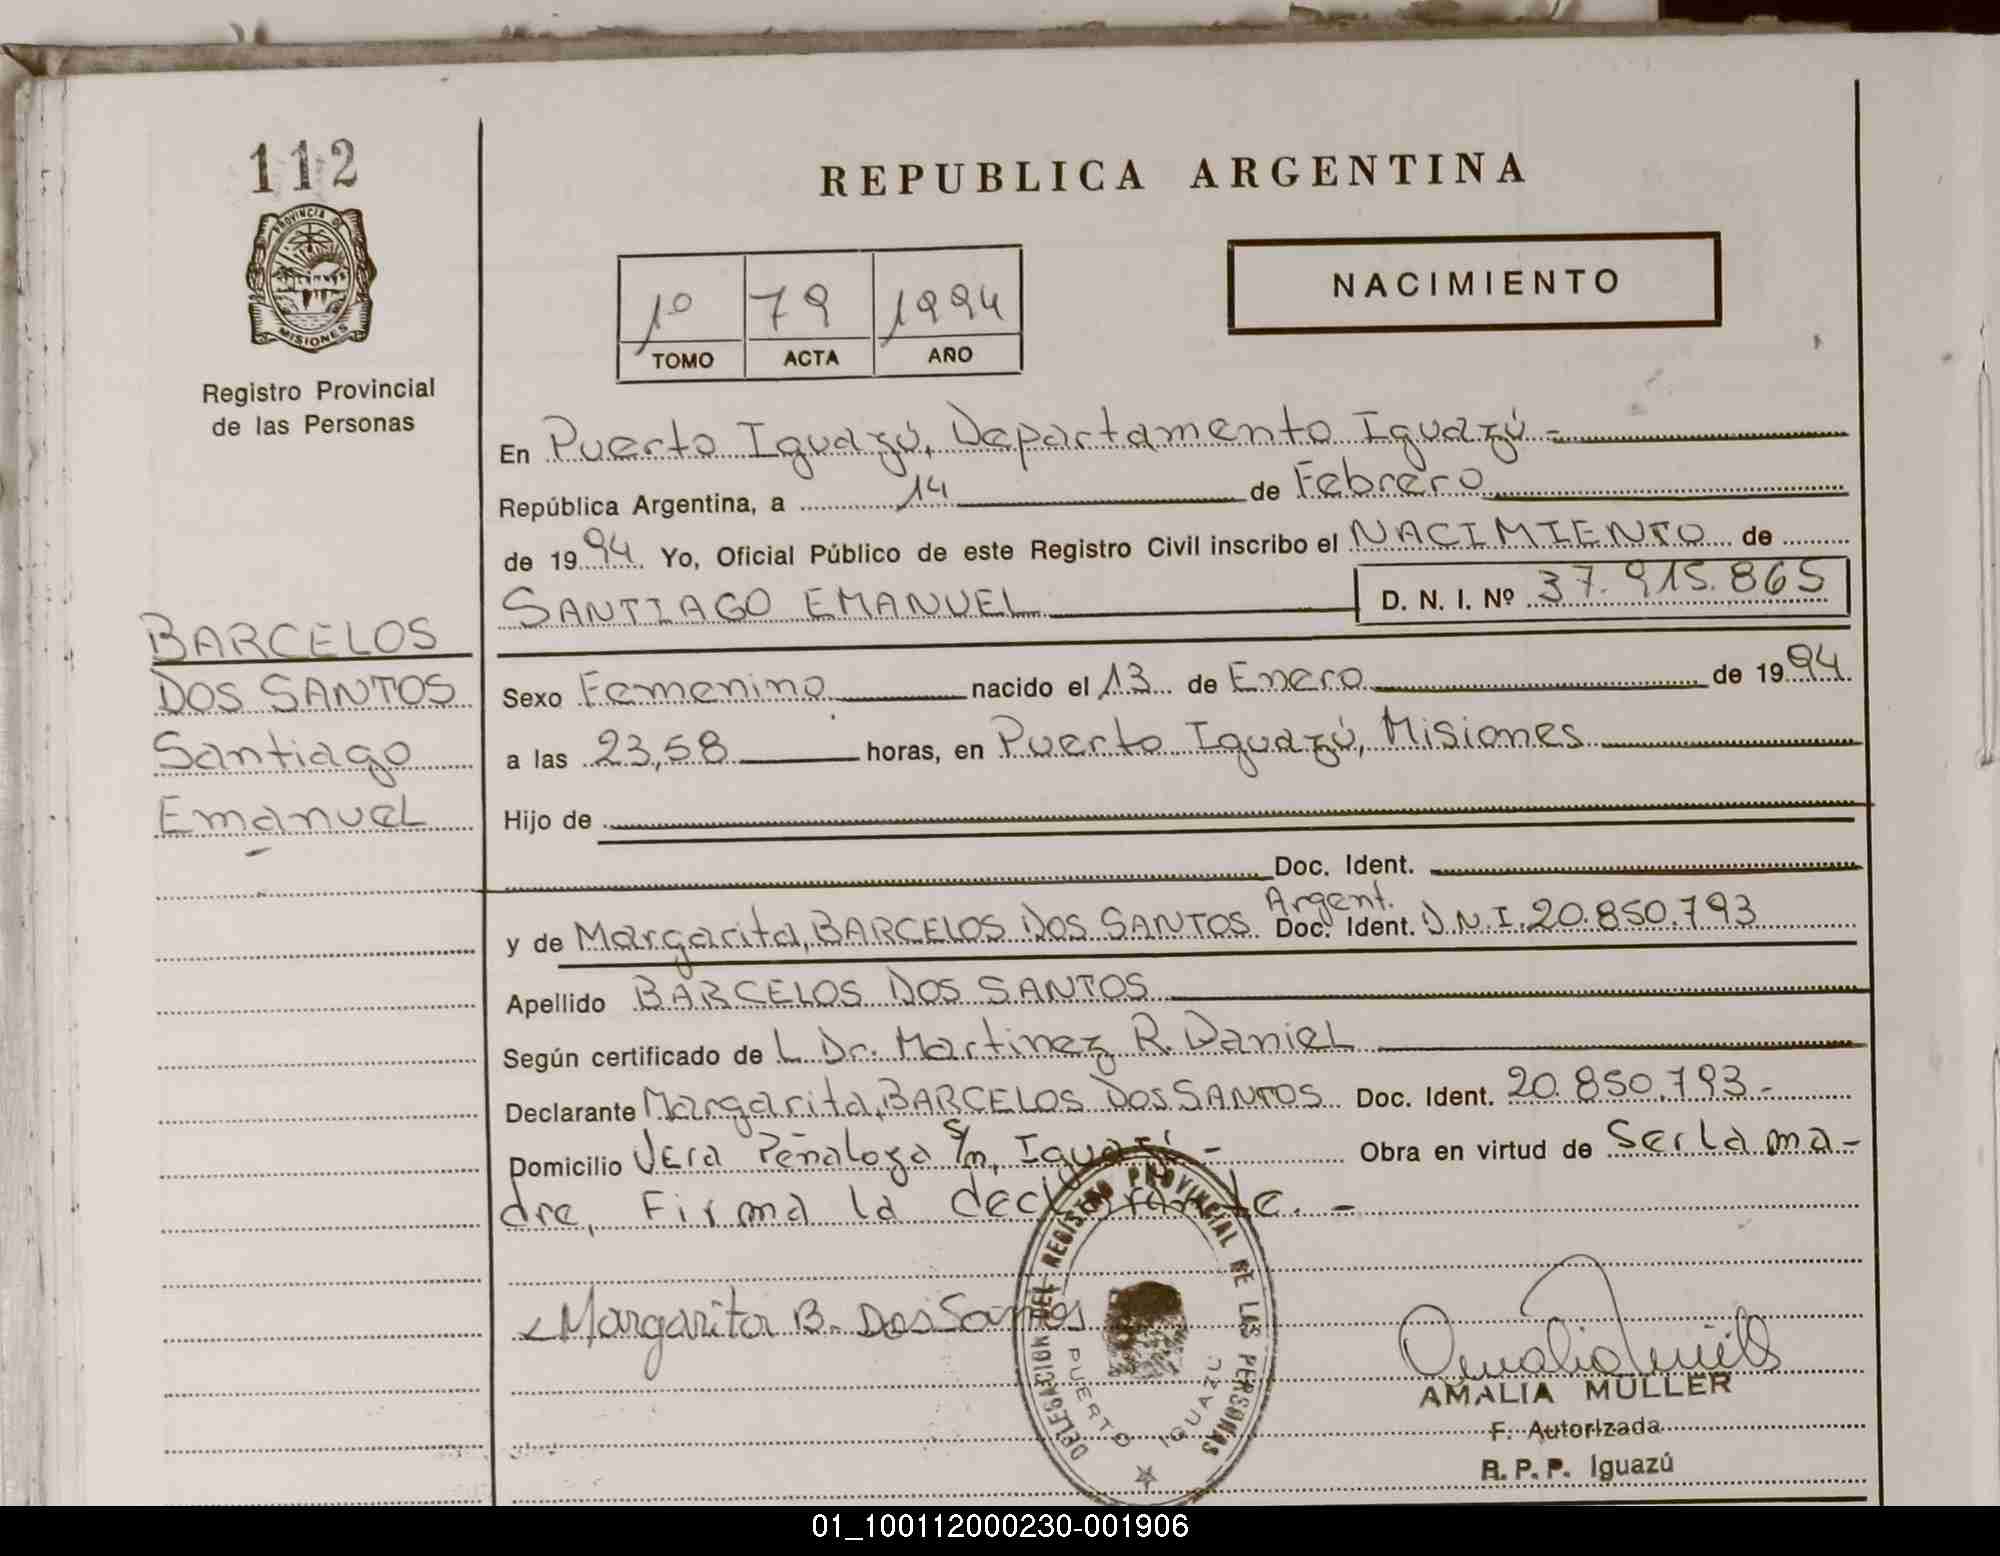 112
PROVINCIA DE
MISIONES
Registro Provincial
de las Personas
BARCELOS
DOS SANTOS
Santiago
Emanuel
REPUBLICA ARGENTINA
1º 79 1994
TOMO ACTA AÑO
NACIMIENTO
En Puerto Iguazú, Departamento Iguazú.-
República Argentina, a 14 de Febrero
de 1994. Yo, Oficial Público de este Registro Civil inscribo el NACIMIENTO de
SANTIAGO EMANUEL D. N. I. Nº 37.915.865
Sexo Femenino nacido el 13 de Enero de 1994.
a las 23,58 horas, en Puerto Iguazú, Misiones
Hijo de
Doc. Ident.
Argent.
y de Margarita, BARCELOS DOS SANTOS Doc. Ident. D.N.I. 20.850.793
Apellido BARCELOS DOS SANTOS
Según certificado de L Dr. Martinez R. Daniel
Declarante Margarita, BARCELOS DOS SANTOS Doc. Ident. 20.850.793.-
Domicilio Vera Peñaloza s/n, Iguazú.- Obra en virtud de Ser la ma-
dre, Firma la declarante.-
Margarita B. Dos Santos
DELEGACION DEL REGISTRO PROVINCIAL DE LAS PERSONAS
PUERTO IGUAZU
AMALIA MULLER
F. Autorizada
R. P. P. Iguazú
01_100112000230-001906